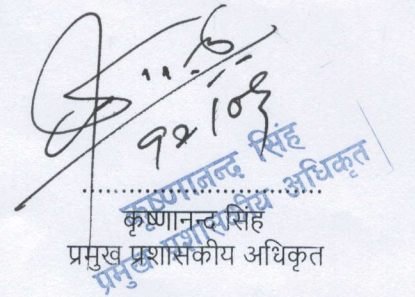 कृष्णानन्द सिंह
प्रमुख प्रशासकीय अधिकृत
......................................
कृष्णानन्द सिंह
प्रमुख प्रशासकीय अधिकृत